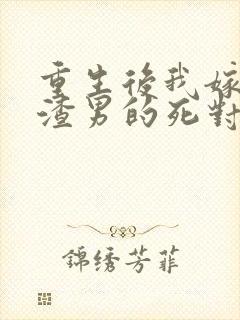 重生後我嫁
渣男的死對
錦绣芳菲